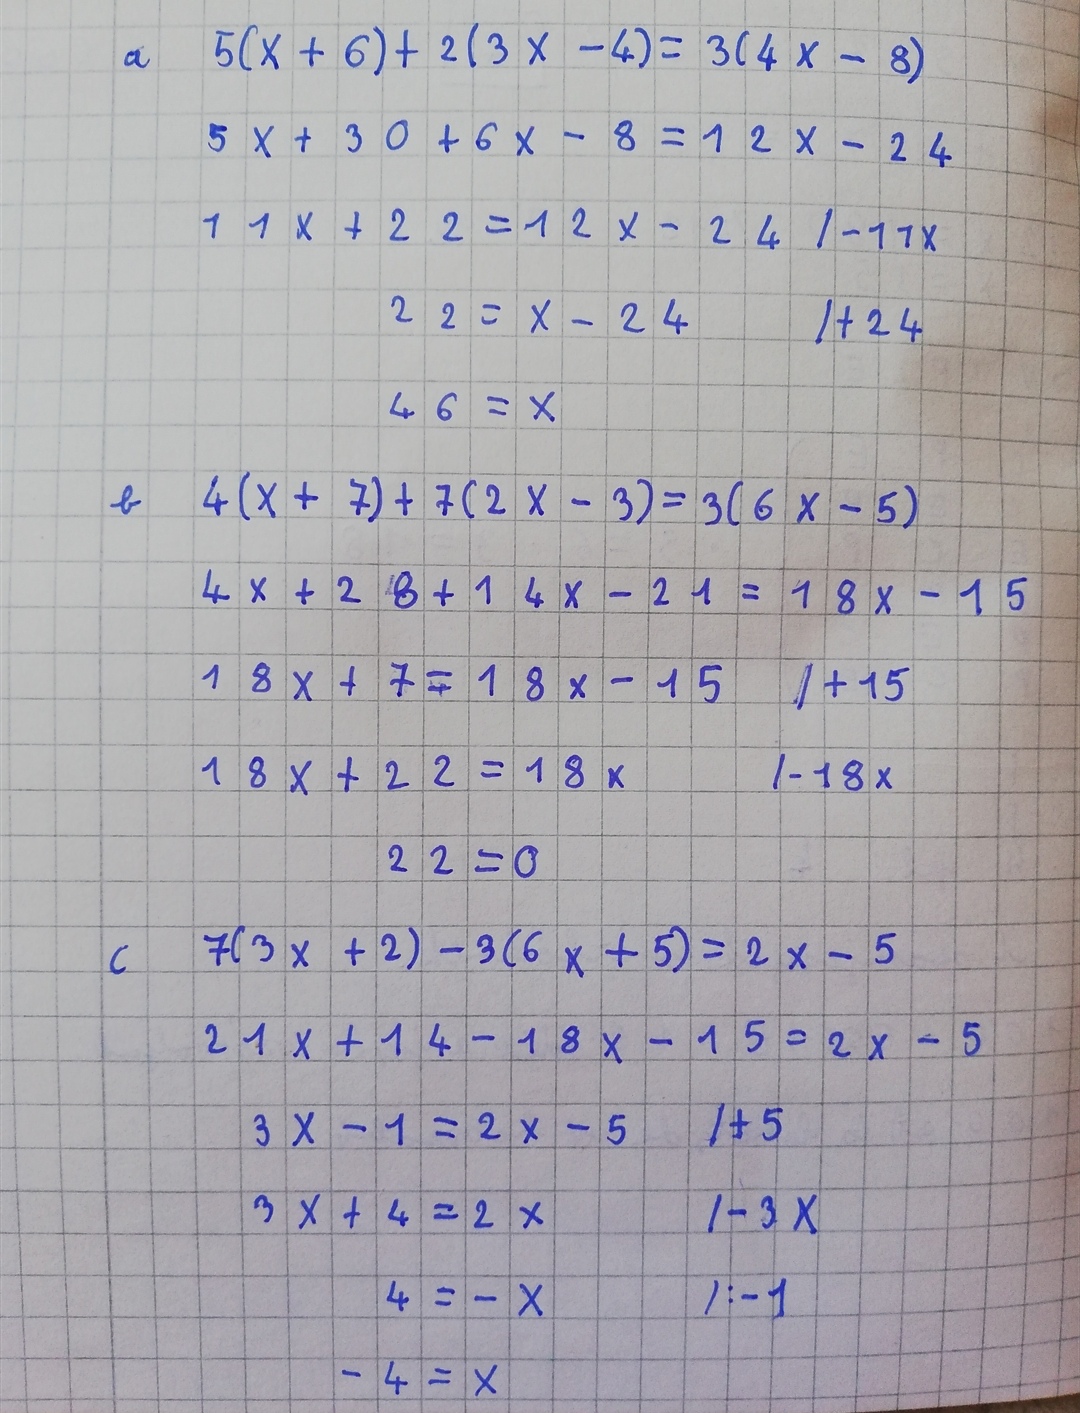 a 5(x + 6) + 2(3x - 4) = 3(4x - 8)
5x + 30 + 6x - 8 = 12x - 24
11x + 22 = 12x - 24 /-11x
22 = x - 24 /+24
46 = x
b 4(x + 7) + 7(2x - 3) = 3(6x - 5)
4x + 28 + 14x - 21 = 18x - 15
18x + 7 = 18x - 15 /+15
18x + 22 = 18x /-18x
22 = 0
c 7(3x + 2) - 3(6x + 5) = 2x - 5
21x + 14 - 18x - 15 = 2x - 5
3x - 1 = 2x - 5 /+5
3x + 4 = 2x /-3x
4 = -x /:-1
-4 = x